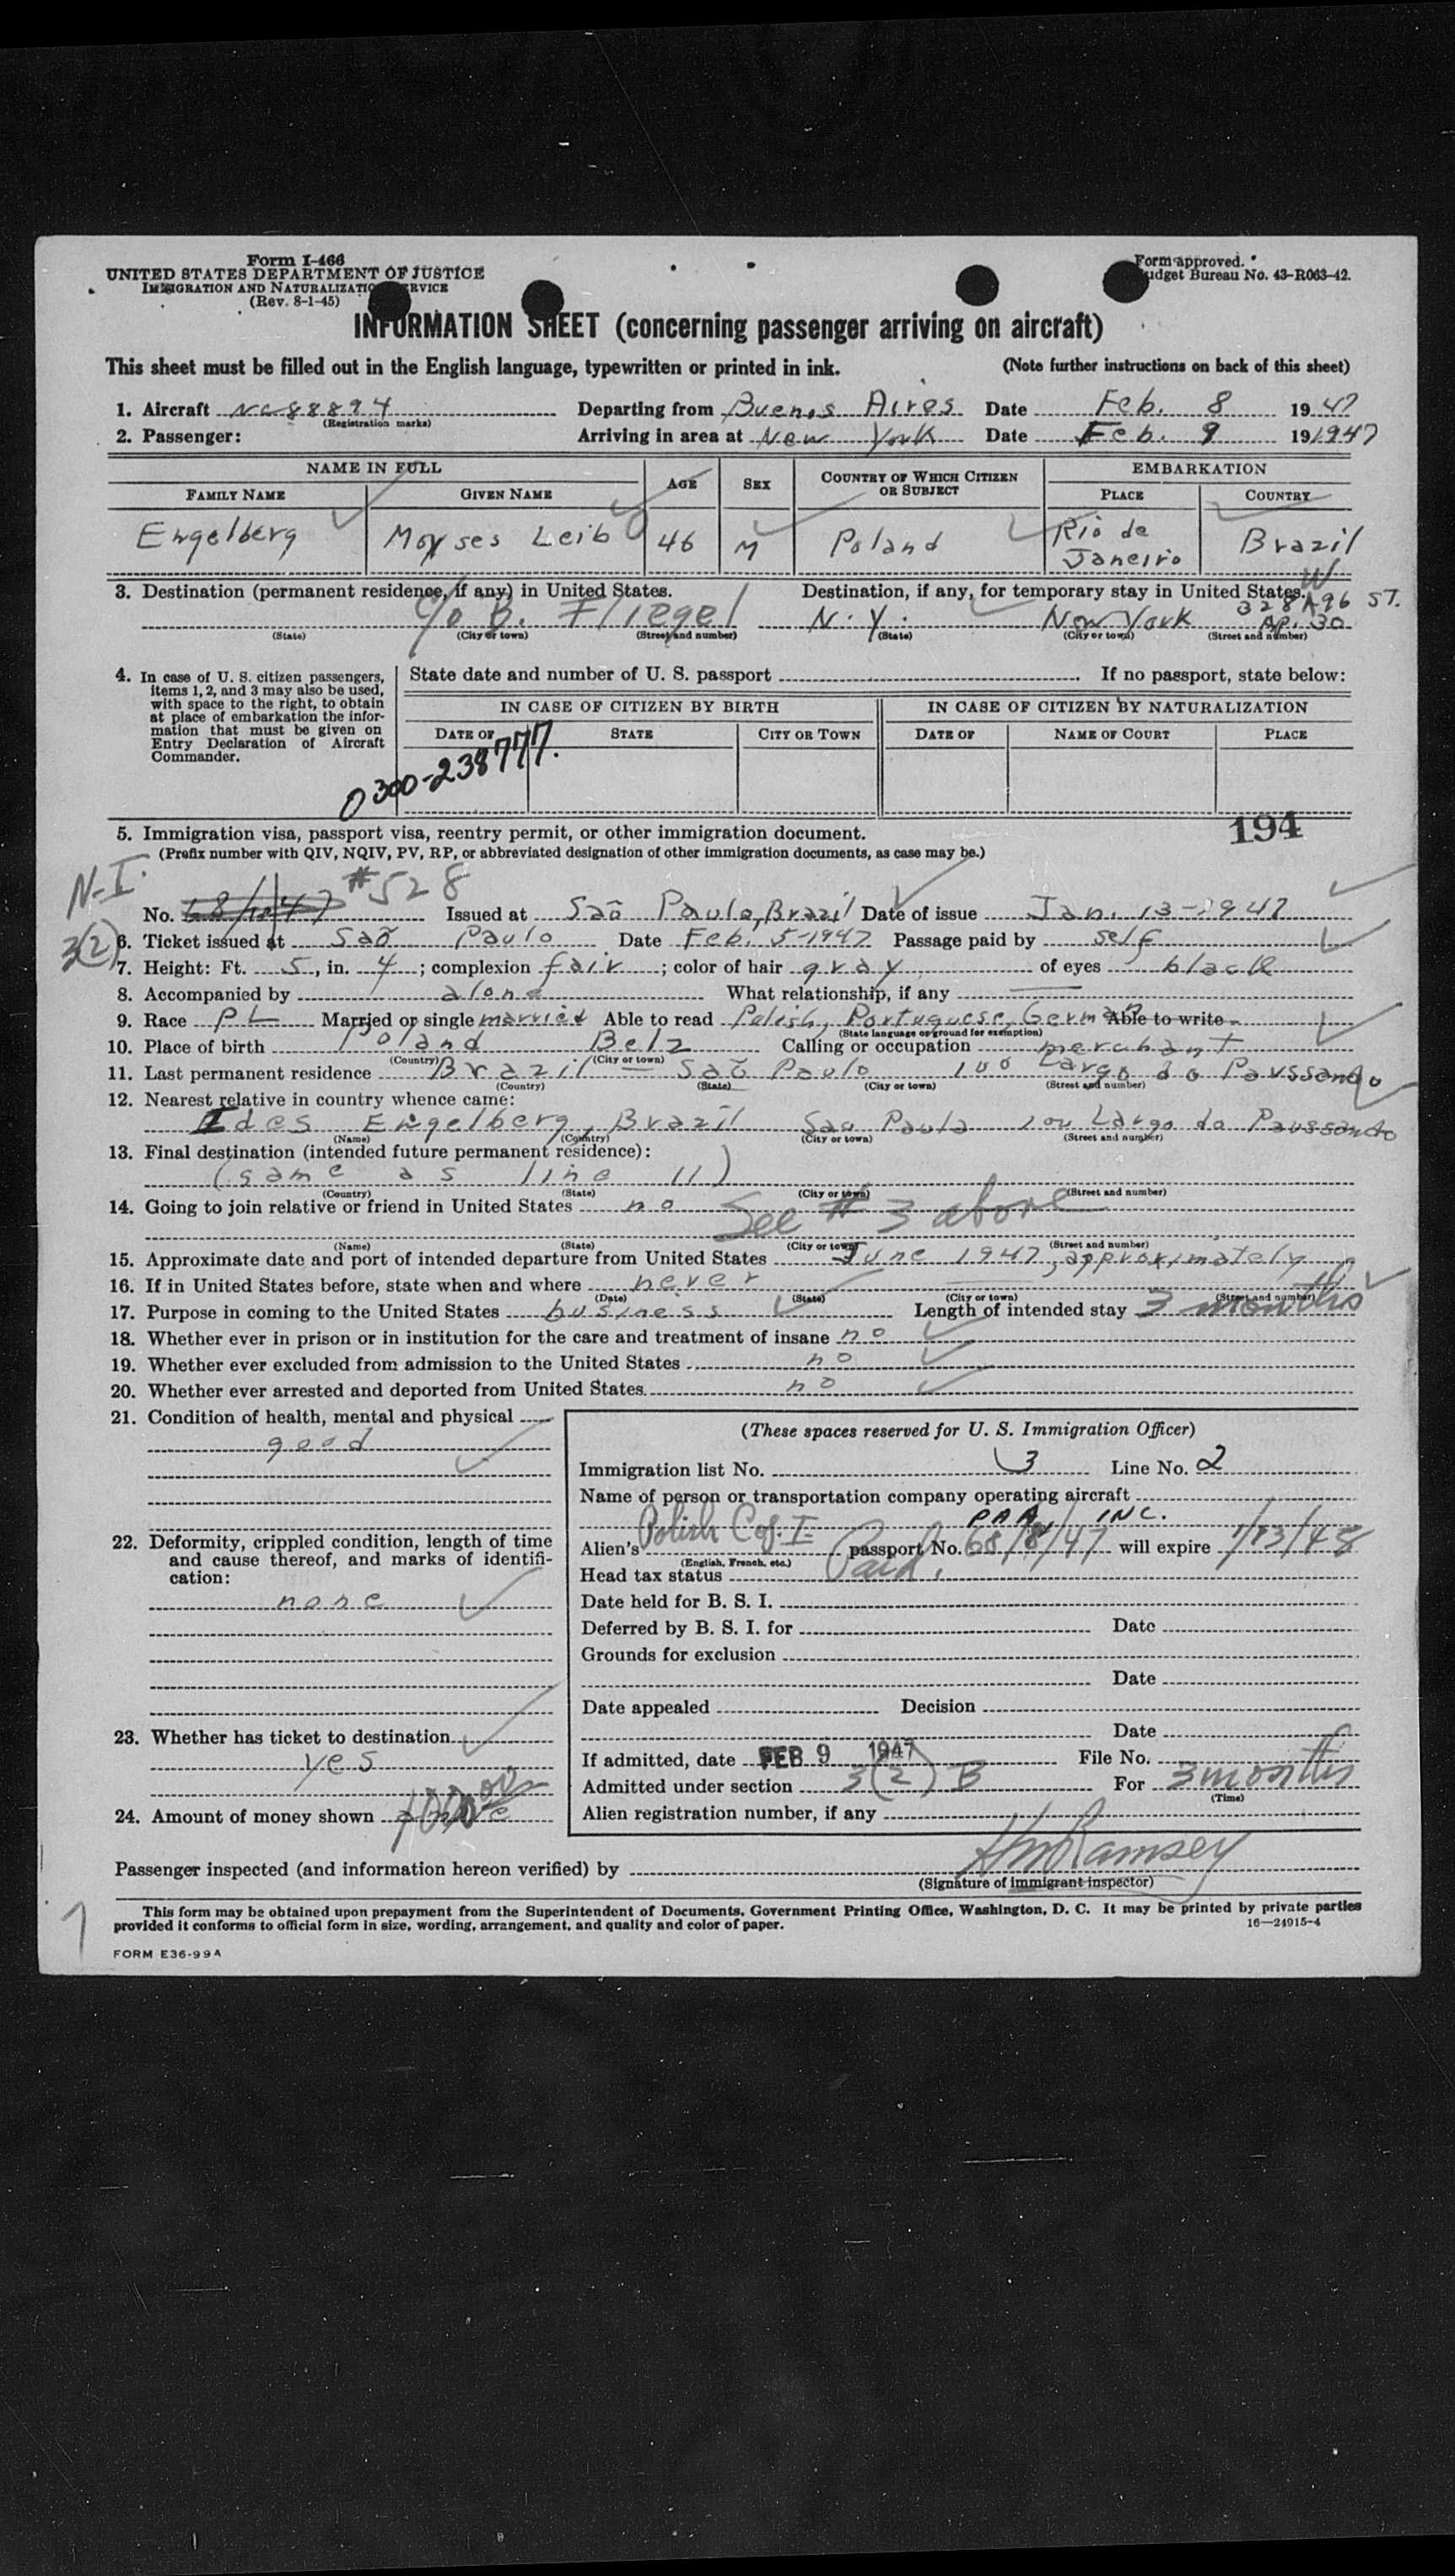 Form I-466
UNITED STATES DEPARTMENT OF JUSTICE
IMMIGRATION AND NATURALIZATION SERVICE
(Rev. 8-1-45)
Form approved.
Budget Bureau No. 43-R063-42.
INFORMATION SHEET (concerning passenger arriving on aircraft)
This sheet must be filled out in the English language, typewritten or printed in ink. (Note further instructions on back of this sheet)
1. Aircraft NC88894 Departing from Buenos Aires Date Feb. 8 1947
(Registration marks)
2. Passenger: Arriving in area at New York Date Feb. 9 191947
NAME IN FULL AGE SEX COUNTRY OF WHICH CITIZEN OR SUBJECT EMBARKATION
FAMILY NAME GIVEN NAME PLACE COUNTRY
Engelberg Moyses Leib 46 M Poland Rio de Janeiro Brazil
3. Destination (permanent residence, if any) in United States. Destination, if any, for temporary stay in United States. W
328 96 ST.
c/o B. Fliegel N.Y. New York Ap. 30
(State) (City or town) (Street and number) (State) (City or town) (Street and number)
4. In case of U. S. citizen passengers, items 1, 2, and 3 may also be used, with space to the right, to obtain at place of embarkation the information that must be given on Entry Declaration of Aircraft Commander.
State date and number of U. S. passport If no passport, state below:
IN CASE OF CITIZEN BY BIRTH IN CASE OF CITIZEN BY NATURALIZATION
DATE OF STATE CITY OR TOWN DATE OF NAME OF COURT PLACE
0300-238777.
194
5. Immigration visa, passport visa, reentry permit, or other immigration document.
(Prefix number with QIV, NQIV, PV, RP, or abbreviated designation of other immigration documents, as case may be.)
N.I. #528
No. Issued at Saõ Paulo, Brazil Date of issue Jan. 13-1947
3(2)
6. Ticket issued at Saõ Paulo Date Feb. 5-1947 Passage paid by self
7. Height: Ft. 5, in. 4; complexion fair; color of hair gray of eyes black
8. Accompanied by alone What relationship, if any
9. Race PL Married or single married Able to read Polish, Portuguese, German Able to write
(State language or ground for exemption)
10. Place of birth Poland Belz Calling or occupation merchant
(Country) (City or town)
11. Last permanent residence Brazil - Saõ Paulo 100 Largo do Payssando
(Country) (State) (City or town) (Street and number)
12. Nearest relative in country whence came:
Ides Engelberg, Brazil Sao Paulo 100 Largo do Paussando
(Name) (Country) (City or town) (Street and number)
13. Final destination (intended future permanent residence):
(same as line 11)
(Country) (State) (City or town) (Street and number)
14. Going to join relative or friend in United States no See #3 above
(Name) (State) (City or town) (Street and number)
15. Approximate date and port of intended departure from United States June 1947, approximately
16. If in United States before, state when and where never
(Date) (State) (City or town) (Street and number)
17. Purpose in coming to the United States business Length of intended stay 3 months
18. Whether ever in prison or in institution for the care and treatment of insane no
19. Whether ever excluded from admission to the United States no
20. Whether ever arrested and deported from United States. no
21. Condition of health, mental and physical
good
22. Deformity, crippled condition, length of time and cause thereof, and marks of identification:
none
23. Whether has ticket to destination
yes
24. Amount of money shown
(These spaces reserved for U. S. Immigration Officer)
Immigration list No. 3 Line No. 2
Name of person or transportation company operating aircraft
PAA, INC.
Alien's Polish Cof. I passport No. 68/8/47 will expire 1/13/48
(English, French, etc.)
Head tax status Paid.
Date held for B. S. I.
Deferred by B. S. I. for Date
Grounds for exclusion
Date
Date appealed Decision
Date
If admitted, date FEB 9 1947 File No.
Admitted under section 3(2) B For 3 months
(Time)
Alien registration number, if any
Passenger inspected (and information hereon verified) by Ramsey
(Signature of immigrant inspector)
This form may be obtained upon prepayment from the Superintendent of Documents, Government Printing Office, Washington, D. C. It may be printed by private parties
provided it conforms to official form in size, wording, arrangement, and quality and color of paper. 16—24915-4
FORM E36-99A